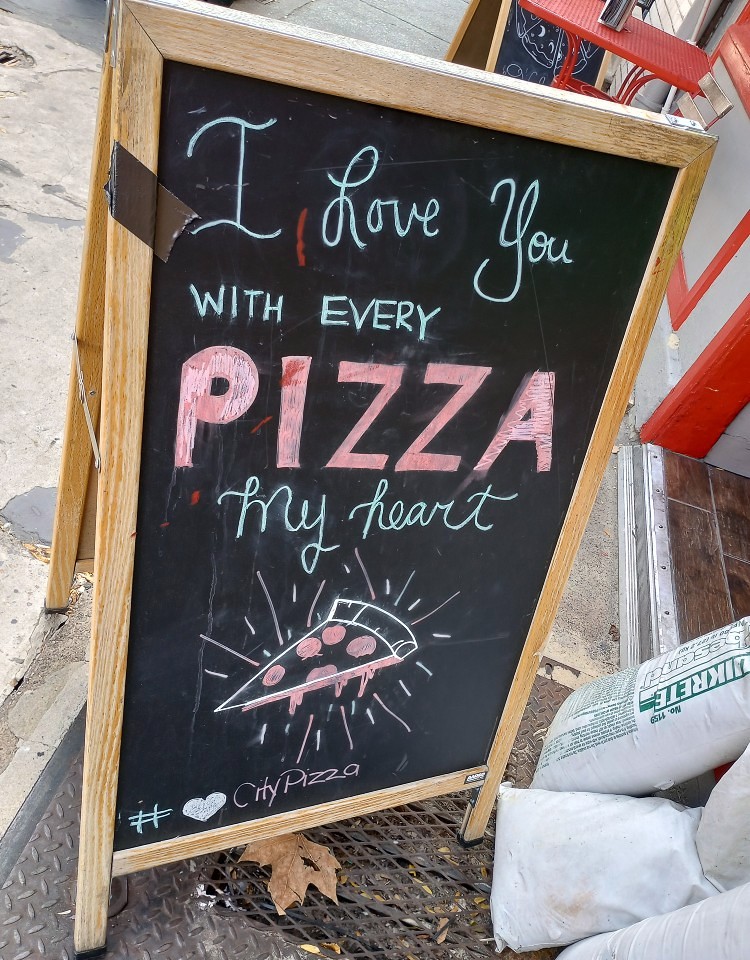 I Love You
WITH EVERY
PIZZA
my heart
# ♥ CityPizza
QUIKRETE
No. 1159